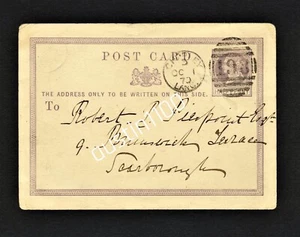 POST CARD
THE ADDRESS ONLY TO BE WRITTEN ON THIS SIDE.
To
Robert Pierpoint Esqr
9. Brunswick Terrace
Scarborough
OC 1
70